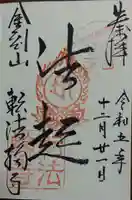 奉拝
令和五年
十二月廿一日
法起
金剛山
転法輪寺